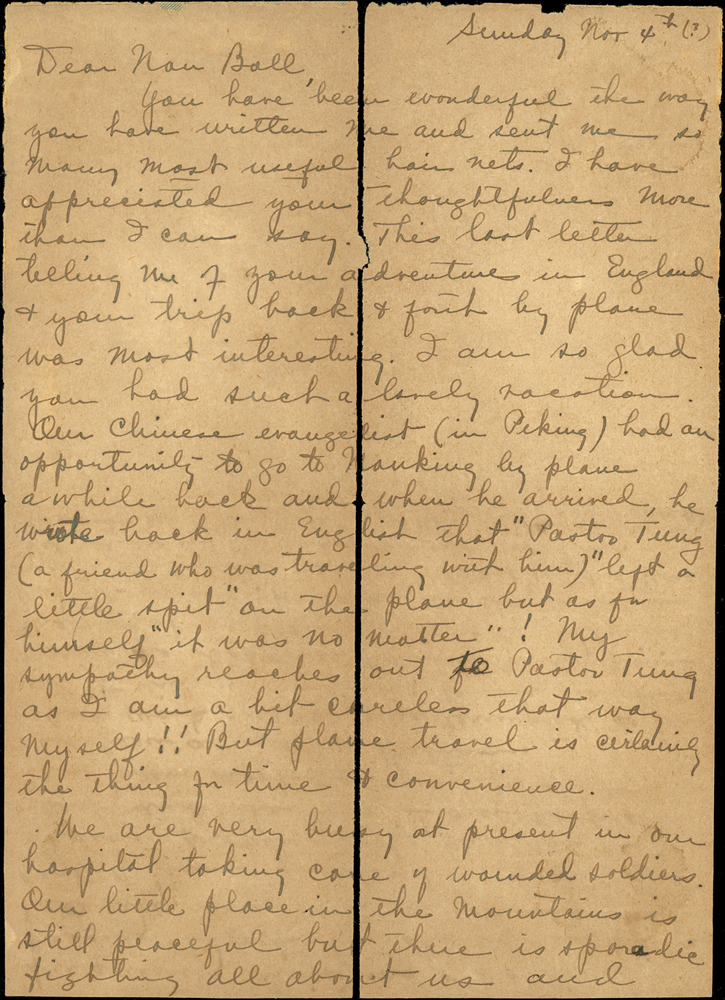 Sunday Nov 4th (?)
Dear Nan Ball,
You have been wonderful the way
you have written me and sent me so
many most useful hair nets. I have
appreciated your thoughtfulness more
than I can say. This last letter
telling me of your adventures in England
& your trip back & forth by plane
was most interesting. I am so glad
you had such a lovely vacation.
Our Chinese evangelist (in Peking) had an
opportunity to go to Nanking by plane
awhile back and when he arrived, he
wrote back in English that "Pastor Tung
(a friend who was traveling with him)" left a
little spit" on the plane but as for
himself "it was no matter"! My
sympathy reaches out to Pastor Tung
as I am a bit careless that way
myself!! But plane travel is certainly
the thing for time & convenience.
We are very busy at present in our
hospital taking care of wounded soldiers.
Our little place in the mountains is
still peaceful but there is sporadic
fighting all about us and